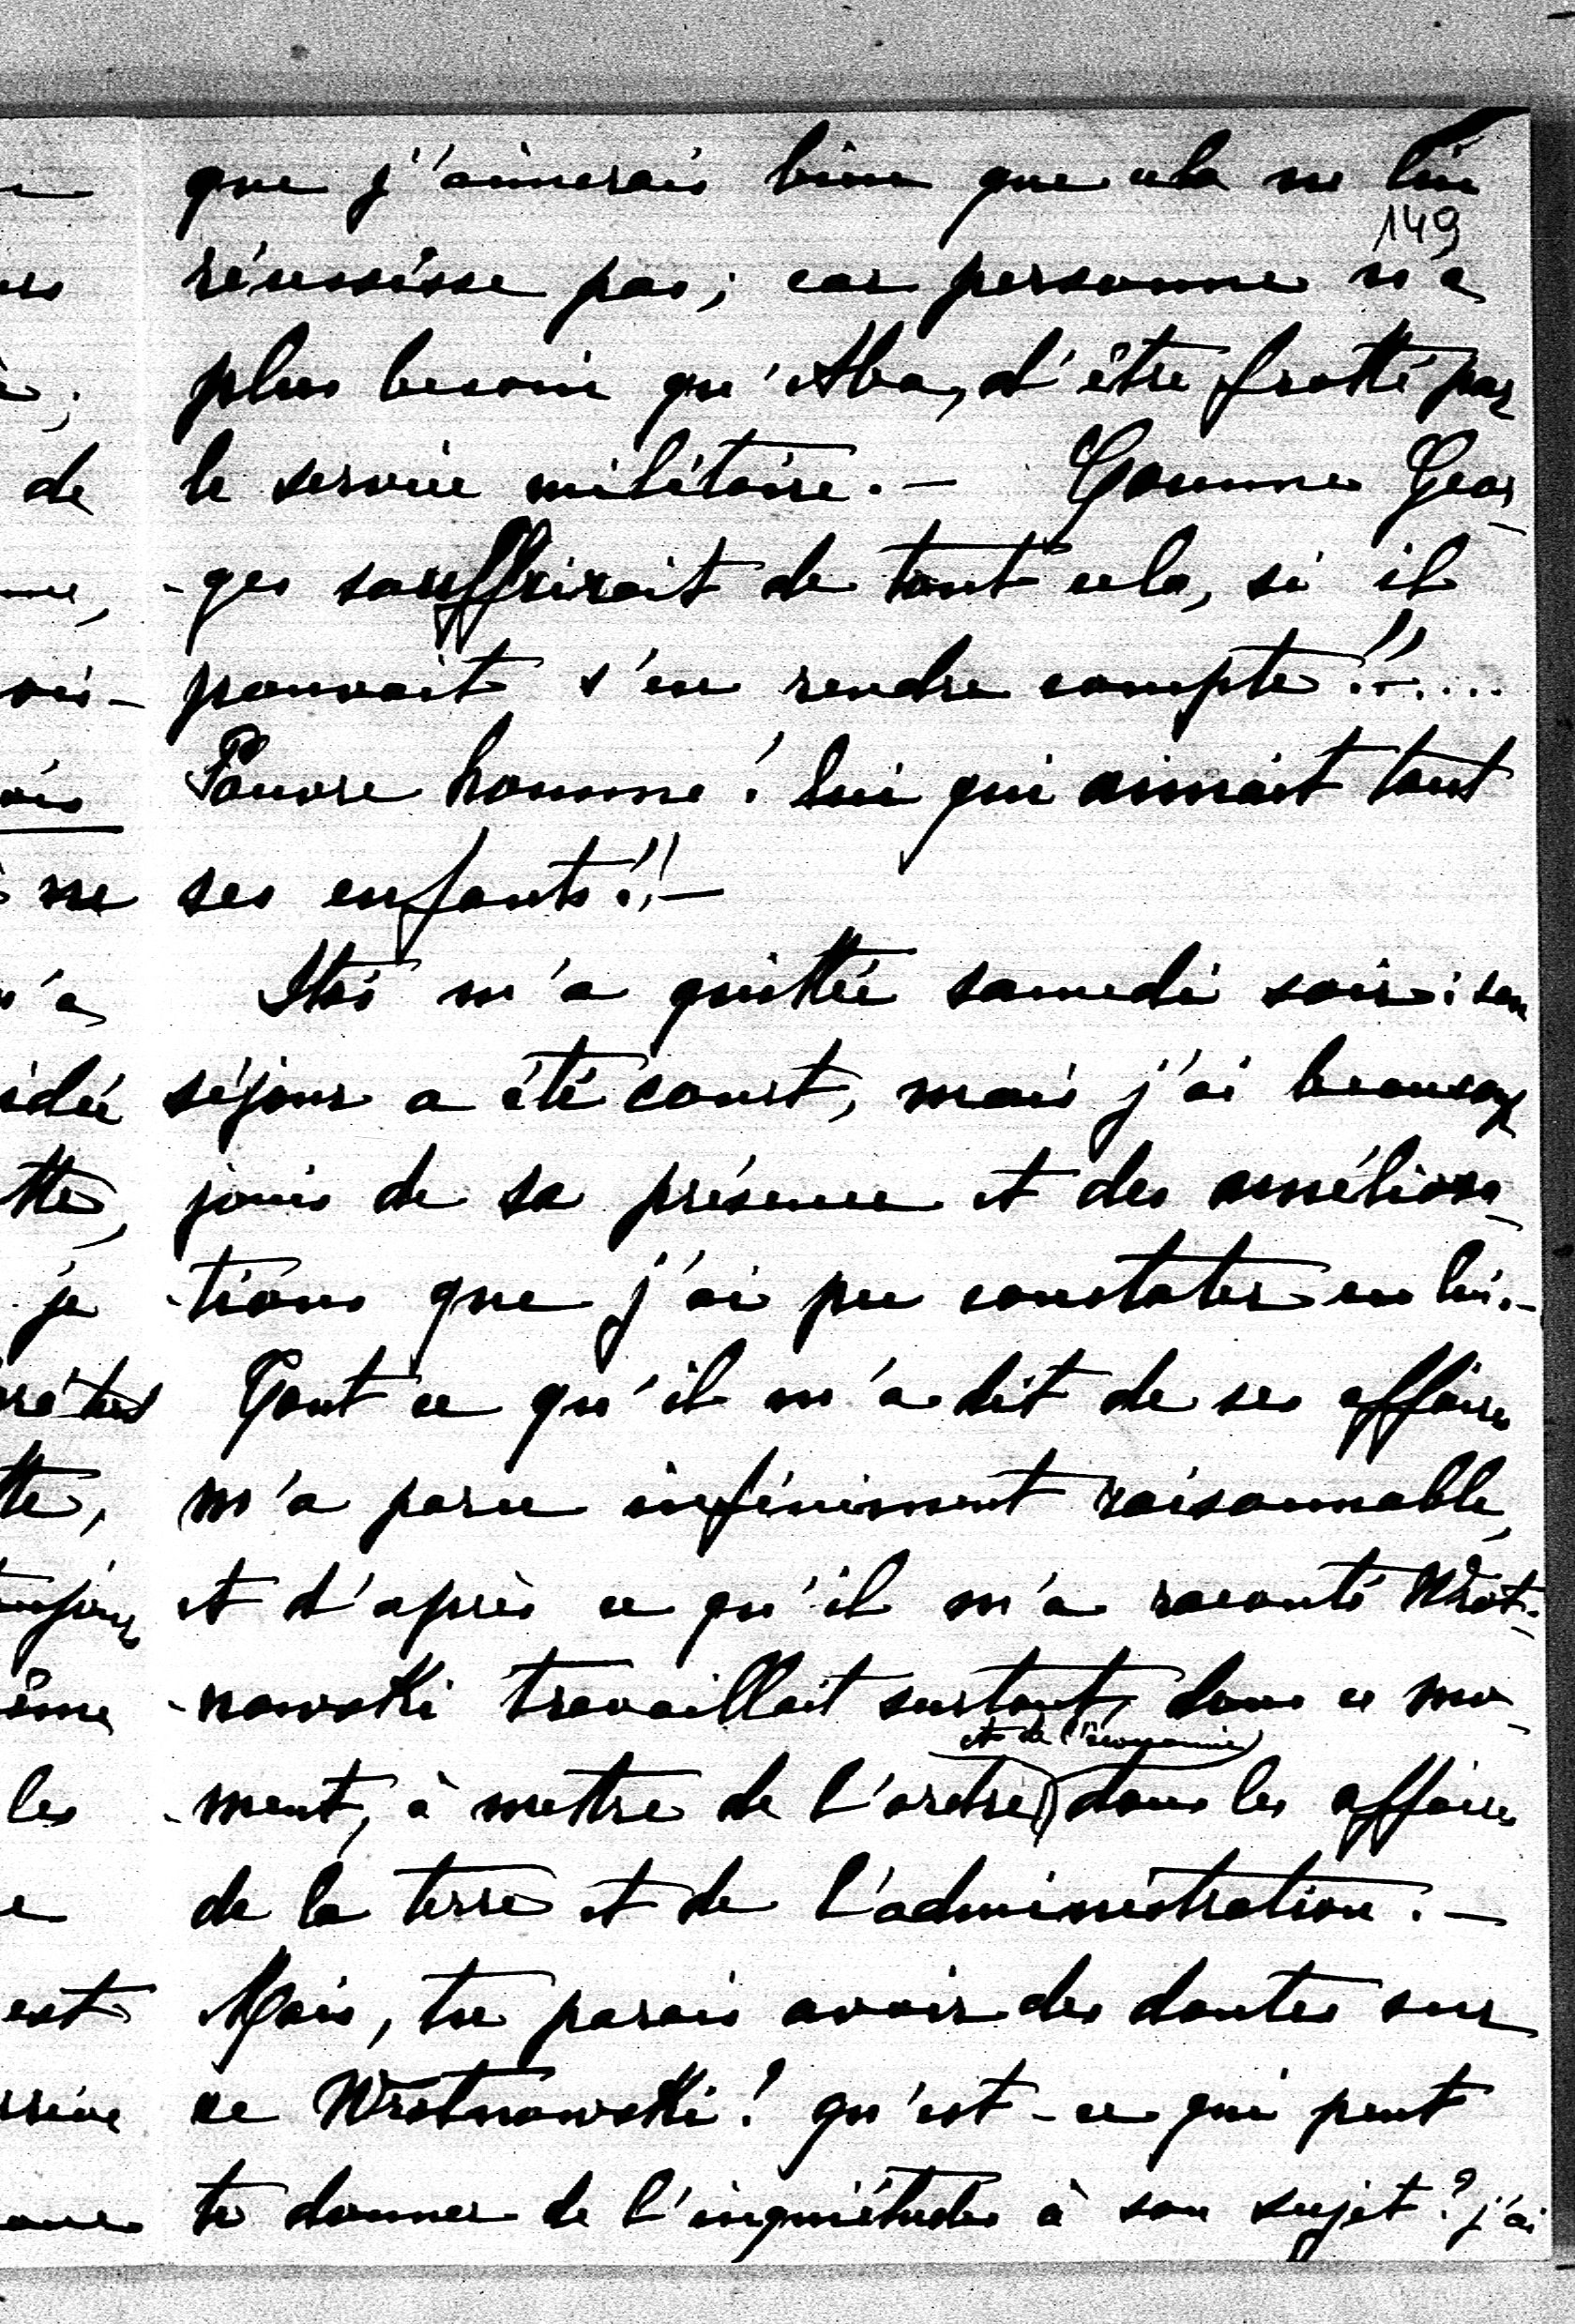 que j'aimerais bien que cela ne lui
149
réussisse pas; car personne n'a
plus besoin qu'Aba, d'être frotté par
le service militaire. – Comme Geor-
-ges souffrirait de tout cela, si il
pouvait s'en rendre compte!!....
Pauvre homme! lui qui aimait tant
ses enfants!! –
m'a quittée samedi soir: son
séjour a été court, mais j'ai beaucoup
joui de sa présence et des améliora-
-tions que j'ai pu constater en lui. –
Tout ce qu'il m'a dit de ses affaires
m'a paru infiniment raisonnable,
et d'après ce qu'il m'a raconté Wrot-
-nowski travaillait surtout, dans ce mo-
et de l'économie
-ment, à mettre de l'ordre dans les affaires
de la terre et de l'administration. –
Mais, tu parais avoir des doutes sur
ce Wrotnowski? qu'est-ce qui peut
te donner de l'inquiétude à son sujet? j'ai